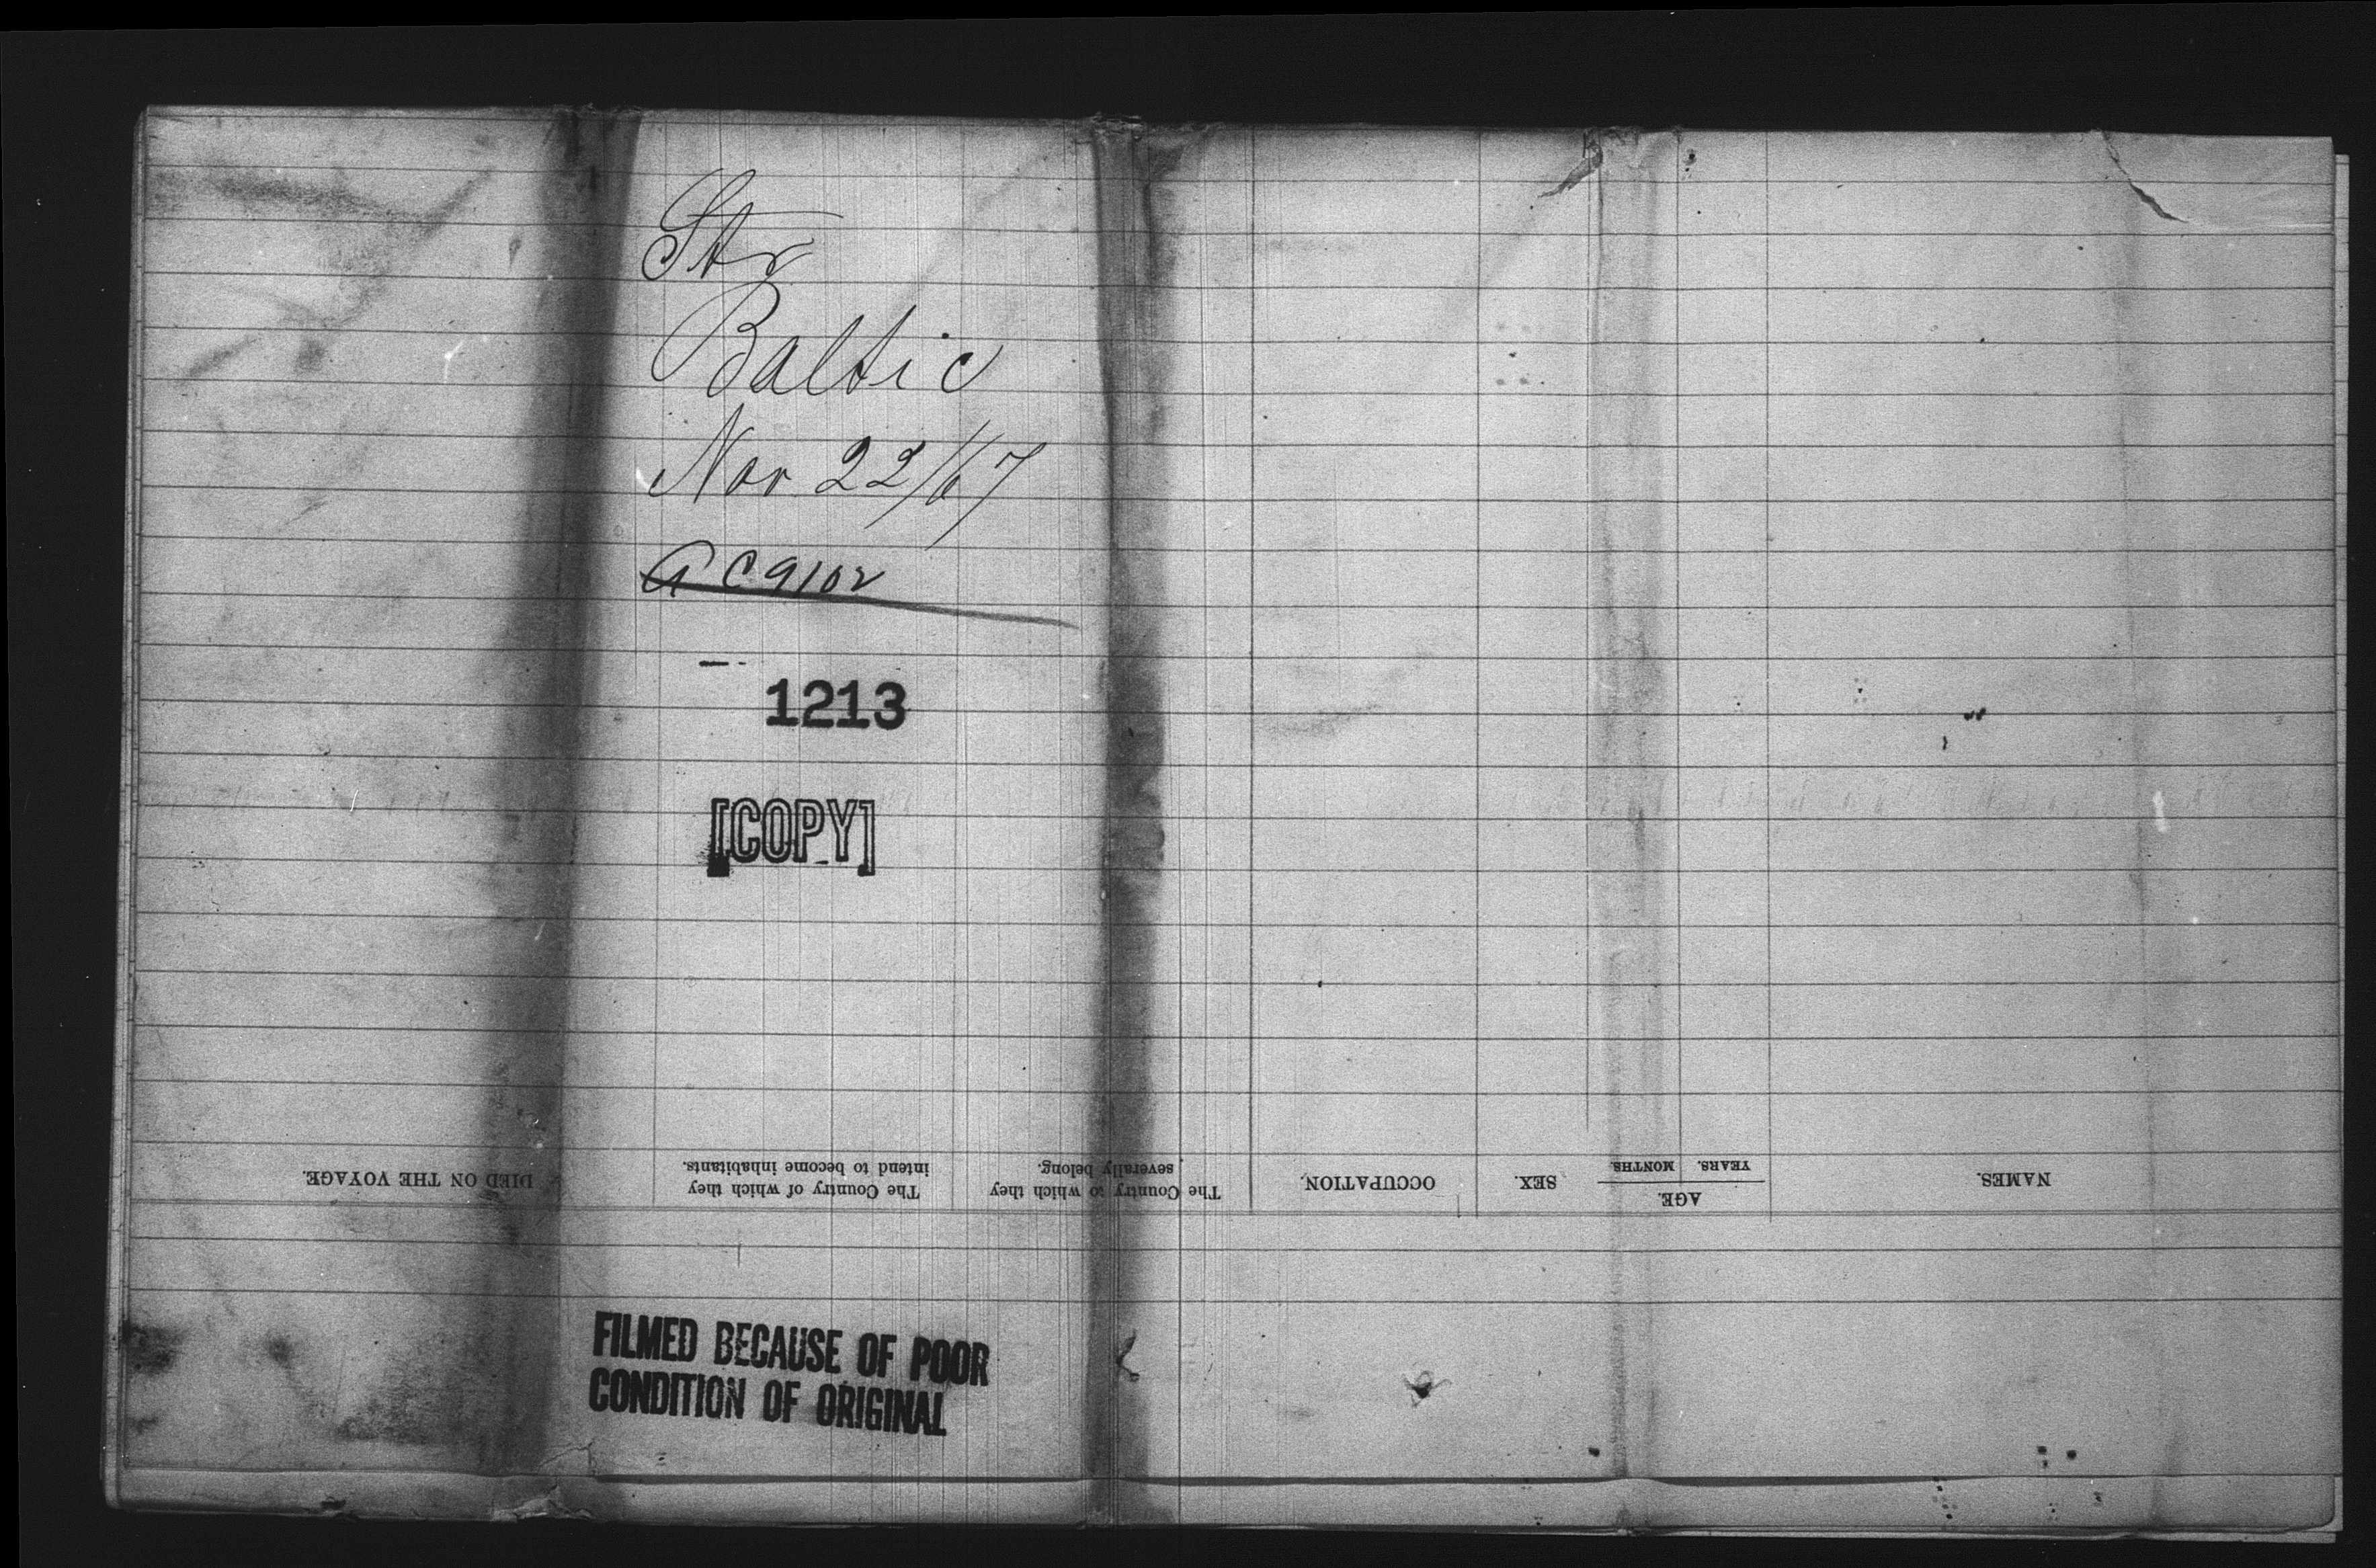 Str
Baltic
Nov 22/67
A C 9102
1213
[COPY]
NAMES.
AGE.
YEARS. MONTHS.
SEX.
OCCUPATION.
The Country to which they
severally belong.
The Country of which they
intend to become inhabitants.
DIED ON THE VOYAGE.
FILMED BECAUSE OF POOR
CONDITION OF ORIGINAL